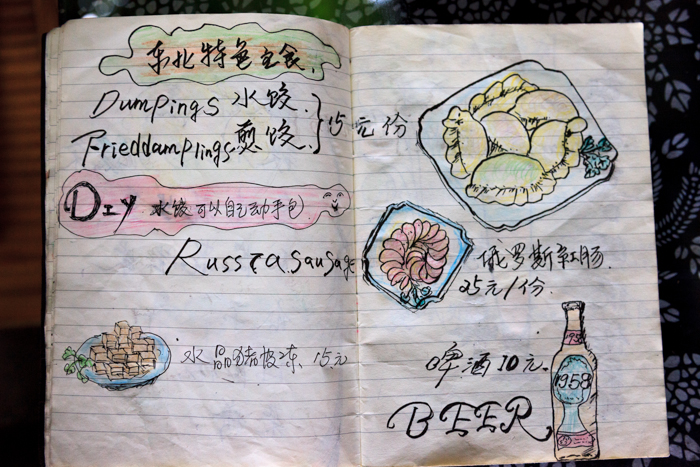 东北特色主食.
Dumpings 水饺.
Frieddamplings. 煎饺.
15元份
DIY 水饺可以自己动手包
Russia Sausage
俄罗斯红肠.
25元/份.
水晶猪皮冻. 15元
啤酒10元.
BEER
1958